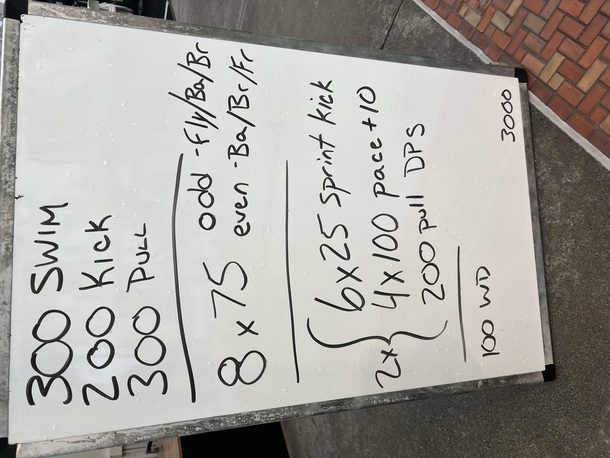 300 SWIM
200 Kick
300 PULL
8 x 75 odd - Fly/Ba/Br
even - Ba/Br/Fr
2x { 6x25 sprint kick
4x100 pace +10
200 pull DPS
100 WD
3000